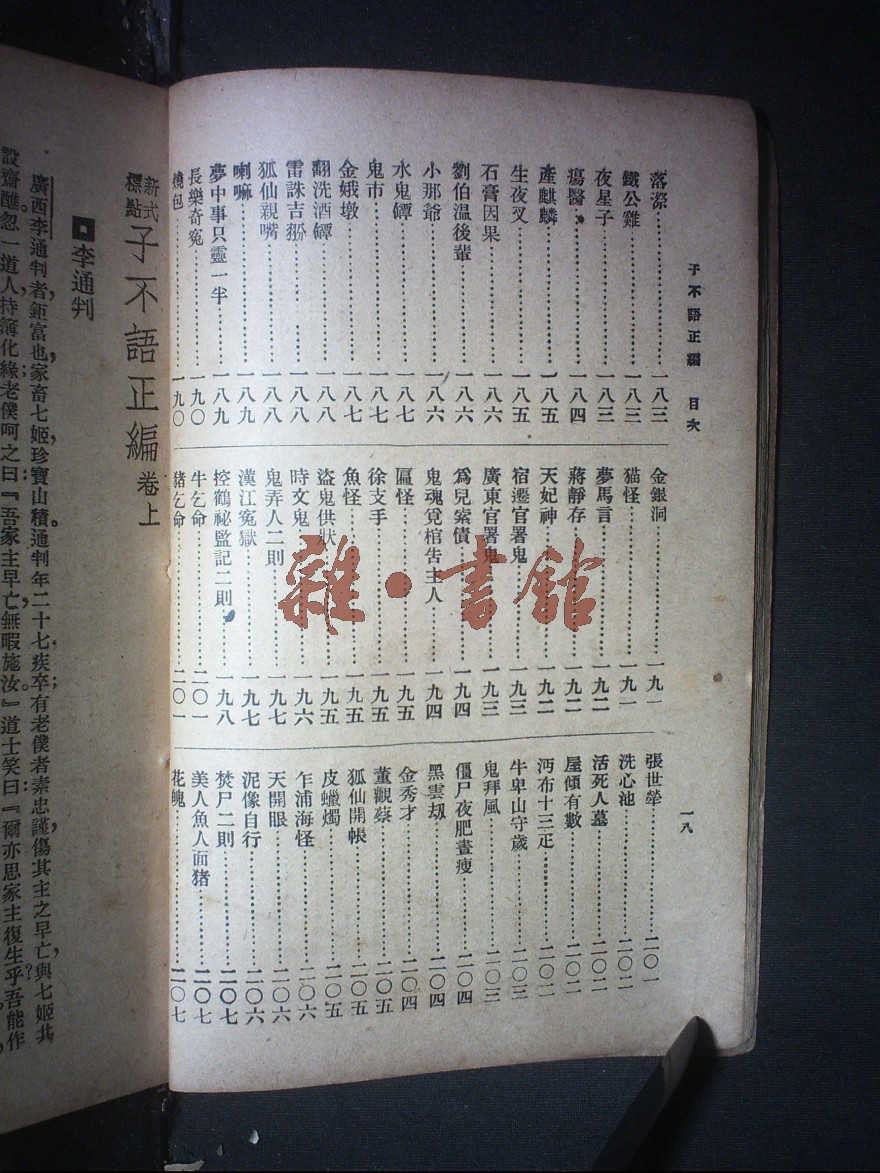 子不語正編　目次
一八
落漈……一八三
鐵公雞……一八三
夜星子……一八三
瘍醫……一八四
產麒麟……一八五
生夜叉……一八五
石膏因果……一八六
劉伯温後輩……一八六
小那爺……一八六
水鬼罈……一八七
鬼市……一八七
金娥墩……一八七
翻洗酒罈……一八八
雷誅吉翂……一八八
狐仙親嘴……一八八
喇嘛……一八九
夢中事只靈一半……一八九
長樂奇冤……一九〇
燒包……一九〇
金銀洞……一九一
猫怪……一九一
夢馬言……一九二
蔣靜存……一九二
天妃神……一九二
宿遷官署鬼……一九三
廣東官署鬼……一九三
爲兒索債……一九四
鬼魂覓棺告主人……一九四
匾怪……一九五
徐支手……一九五
魚怪……一九五
盜鬼供狀……一九五
時文鬼……一九六
鬼弄人二則……一九七
漢江冤獄……一九七
控鶴祕監記二則……一九八
牛乞命……二〇一
猪乞命……二〇一
張世犖……二〇一
洗心池……二〇二
活死人墓……二〇二
屋傾有數……二〇二
沔布十三疋……二〇二
牛卑山守歲……二〇三
鬼拜風……二〇三
僵尸夜肥晝瘦……二〇四
黑雲刼……二〇四
金秀才……二〇四
董觀蔡……二〇五
狐仙開帳……二〇五
皮蠟燭……二〇五
乍浦海怪……二〇六
天開眼……二〇六
泥像自行……二〇六
焚尸二則……二〇七
美人魚人面猪……二〇七
花魄……二〇七
新式標點子不語正編卷上
李通判
廣西李通判者，鉅富也，家畜七姬，珍寶山積。通判年二十七疾卒；有老僕者，素忠謹，傷其主之早亡，與七姬共
設齋醮。忽一道人持簿化緣；老僕呵之曰：『吾家主早亡，無暇施汝。』道士笑曰：『爾亦思家主復生乎？吾能作
雜·書館